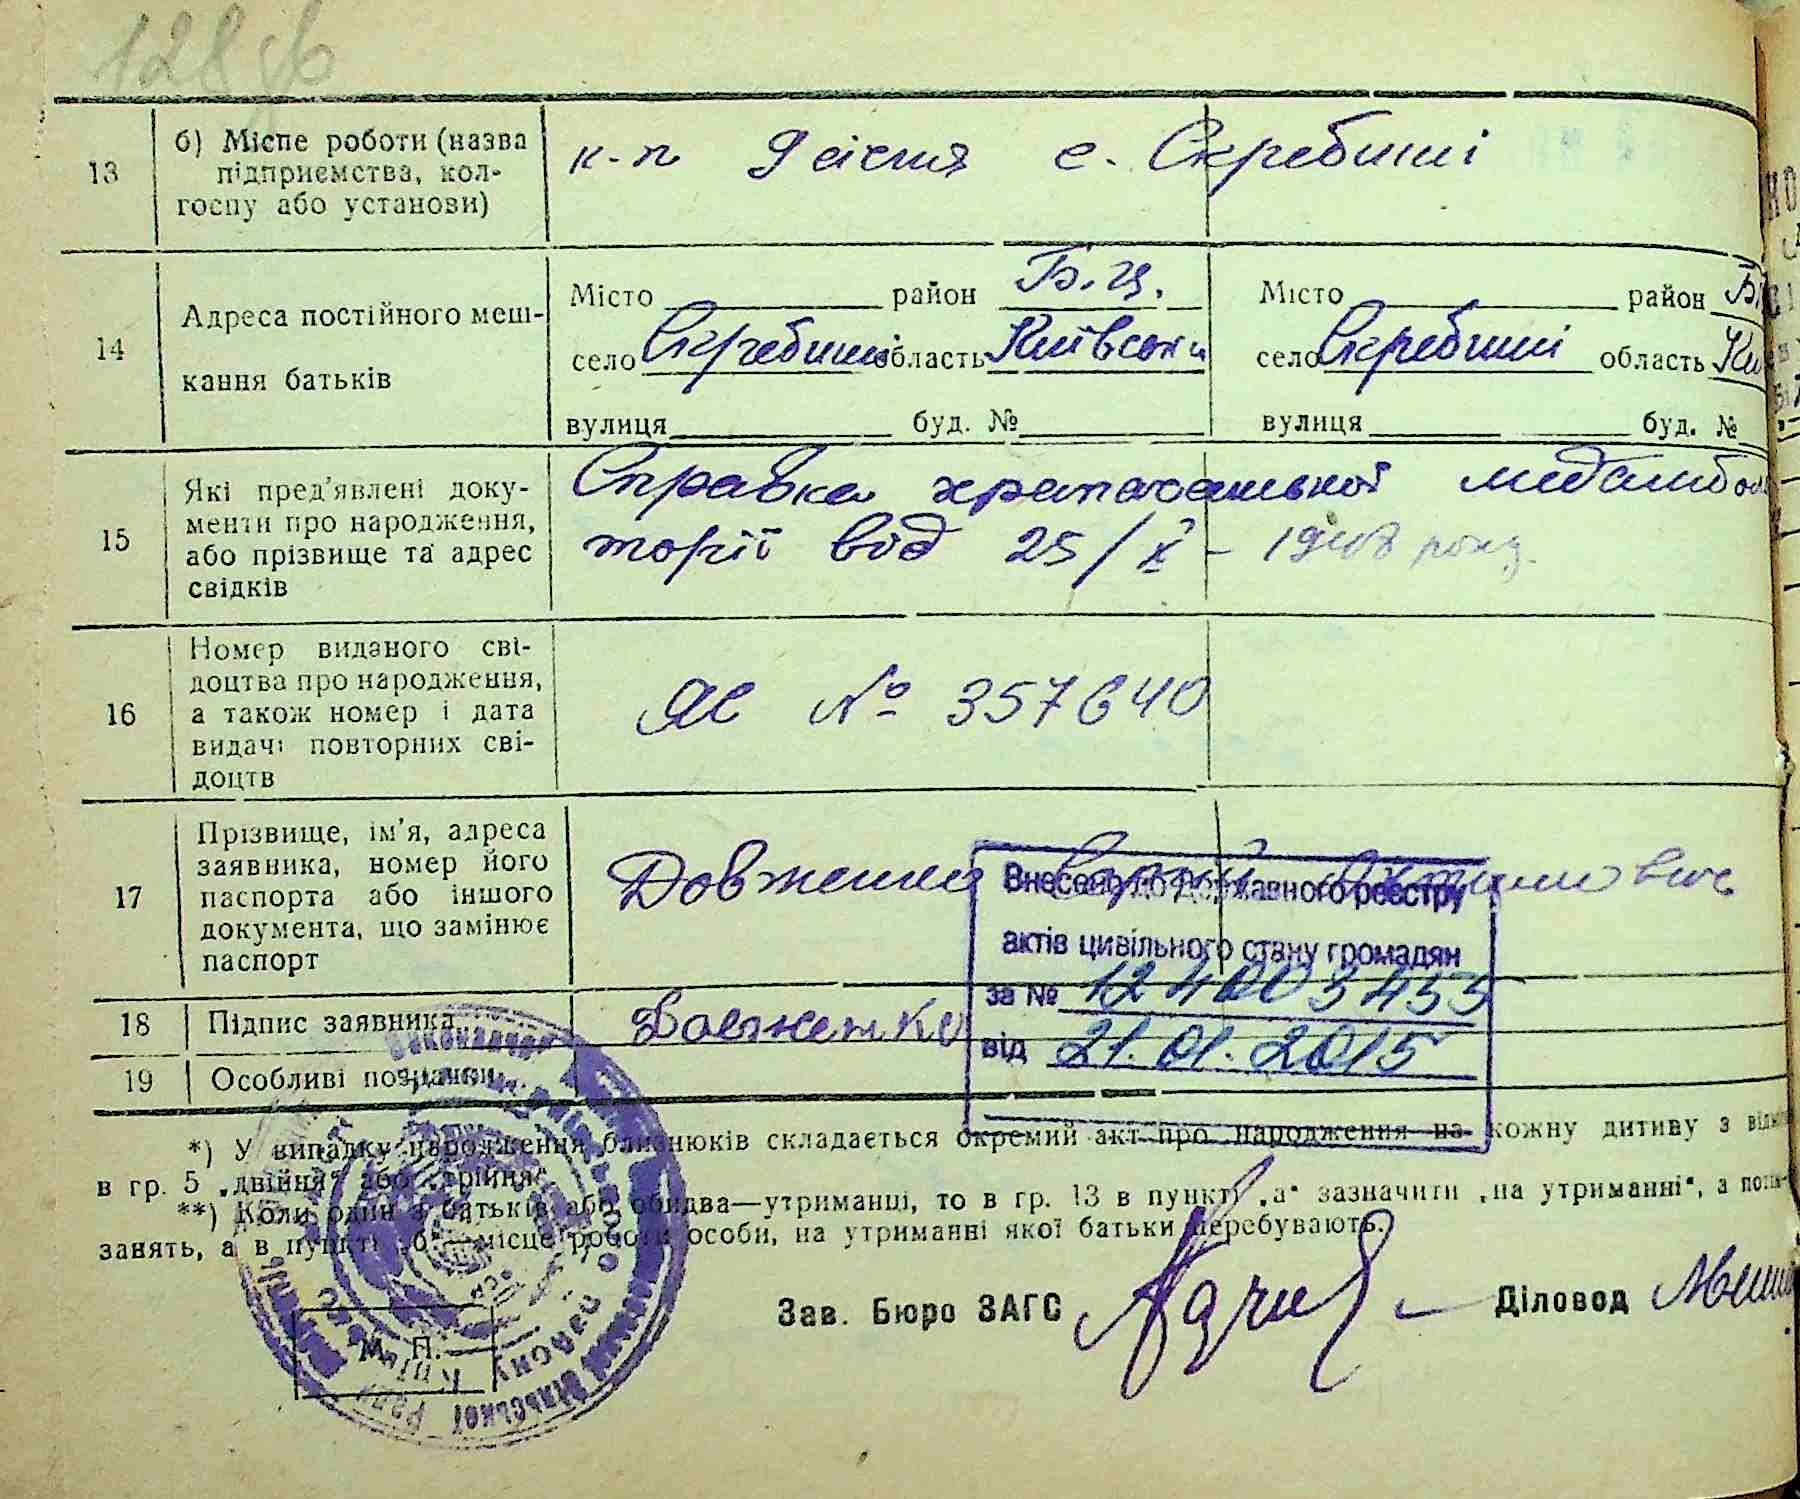 128 зв
13
б) Місце роботи (назва
підприємства, кол-
госпу або установи)
к-п 9 січня с. Скребиші
14
Адреса постійного меш-
кання батьків
Місто район Б. Ц.
село Скребиші область Київська
вулиця буд. №
Місто район
село Скребиші область
вулиця буд. №
15
Які пред'явлені доку-
менти про народження,
або прізвище та адрес
свідків
Справка
торії від 25/X - 1948 року.
16
Номер виданого сві-
доцтва про народження,
а також номер і дата
видачі повторних сві-
доцтв
ЯС № 357640
17
Прізвище, ім'я, адреса
заявника, номер його
паспорта або іншого
документа, що замінює
паспорт
Довженко
Внесено до Державного реєстру
актів цивільного стану громадян
за № 12400 3455
від 21.01.2015
18
Підпис заявника
Довженко
19
Особливі позначки
*) У випадку народження близнюків складається окремий акт про народження на кожну дитину з
в гр. 5 „двійня“ або „трійня“
**) Коли один з батьків або обидва—утриманці, то в гр. 13 в пункті „а“ зазначити „на утриманні“, а
занять, а в пункті „б“—місце роботи особи, на утриманні якої батьки перебувають.
Зав. Бюро ЗАГС
Діловод
М. П.